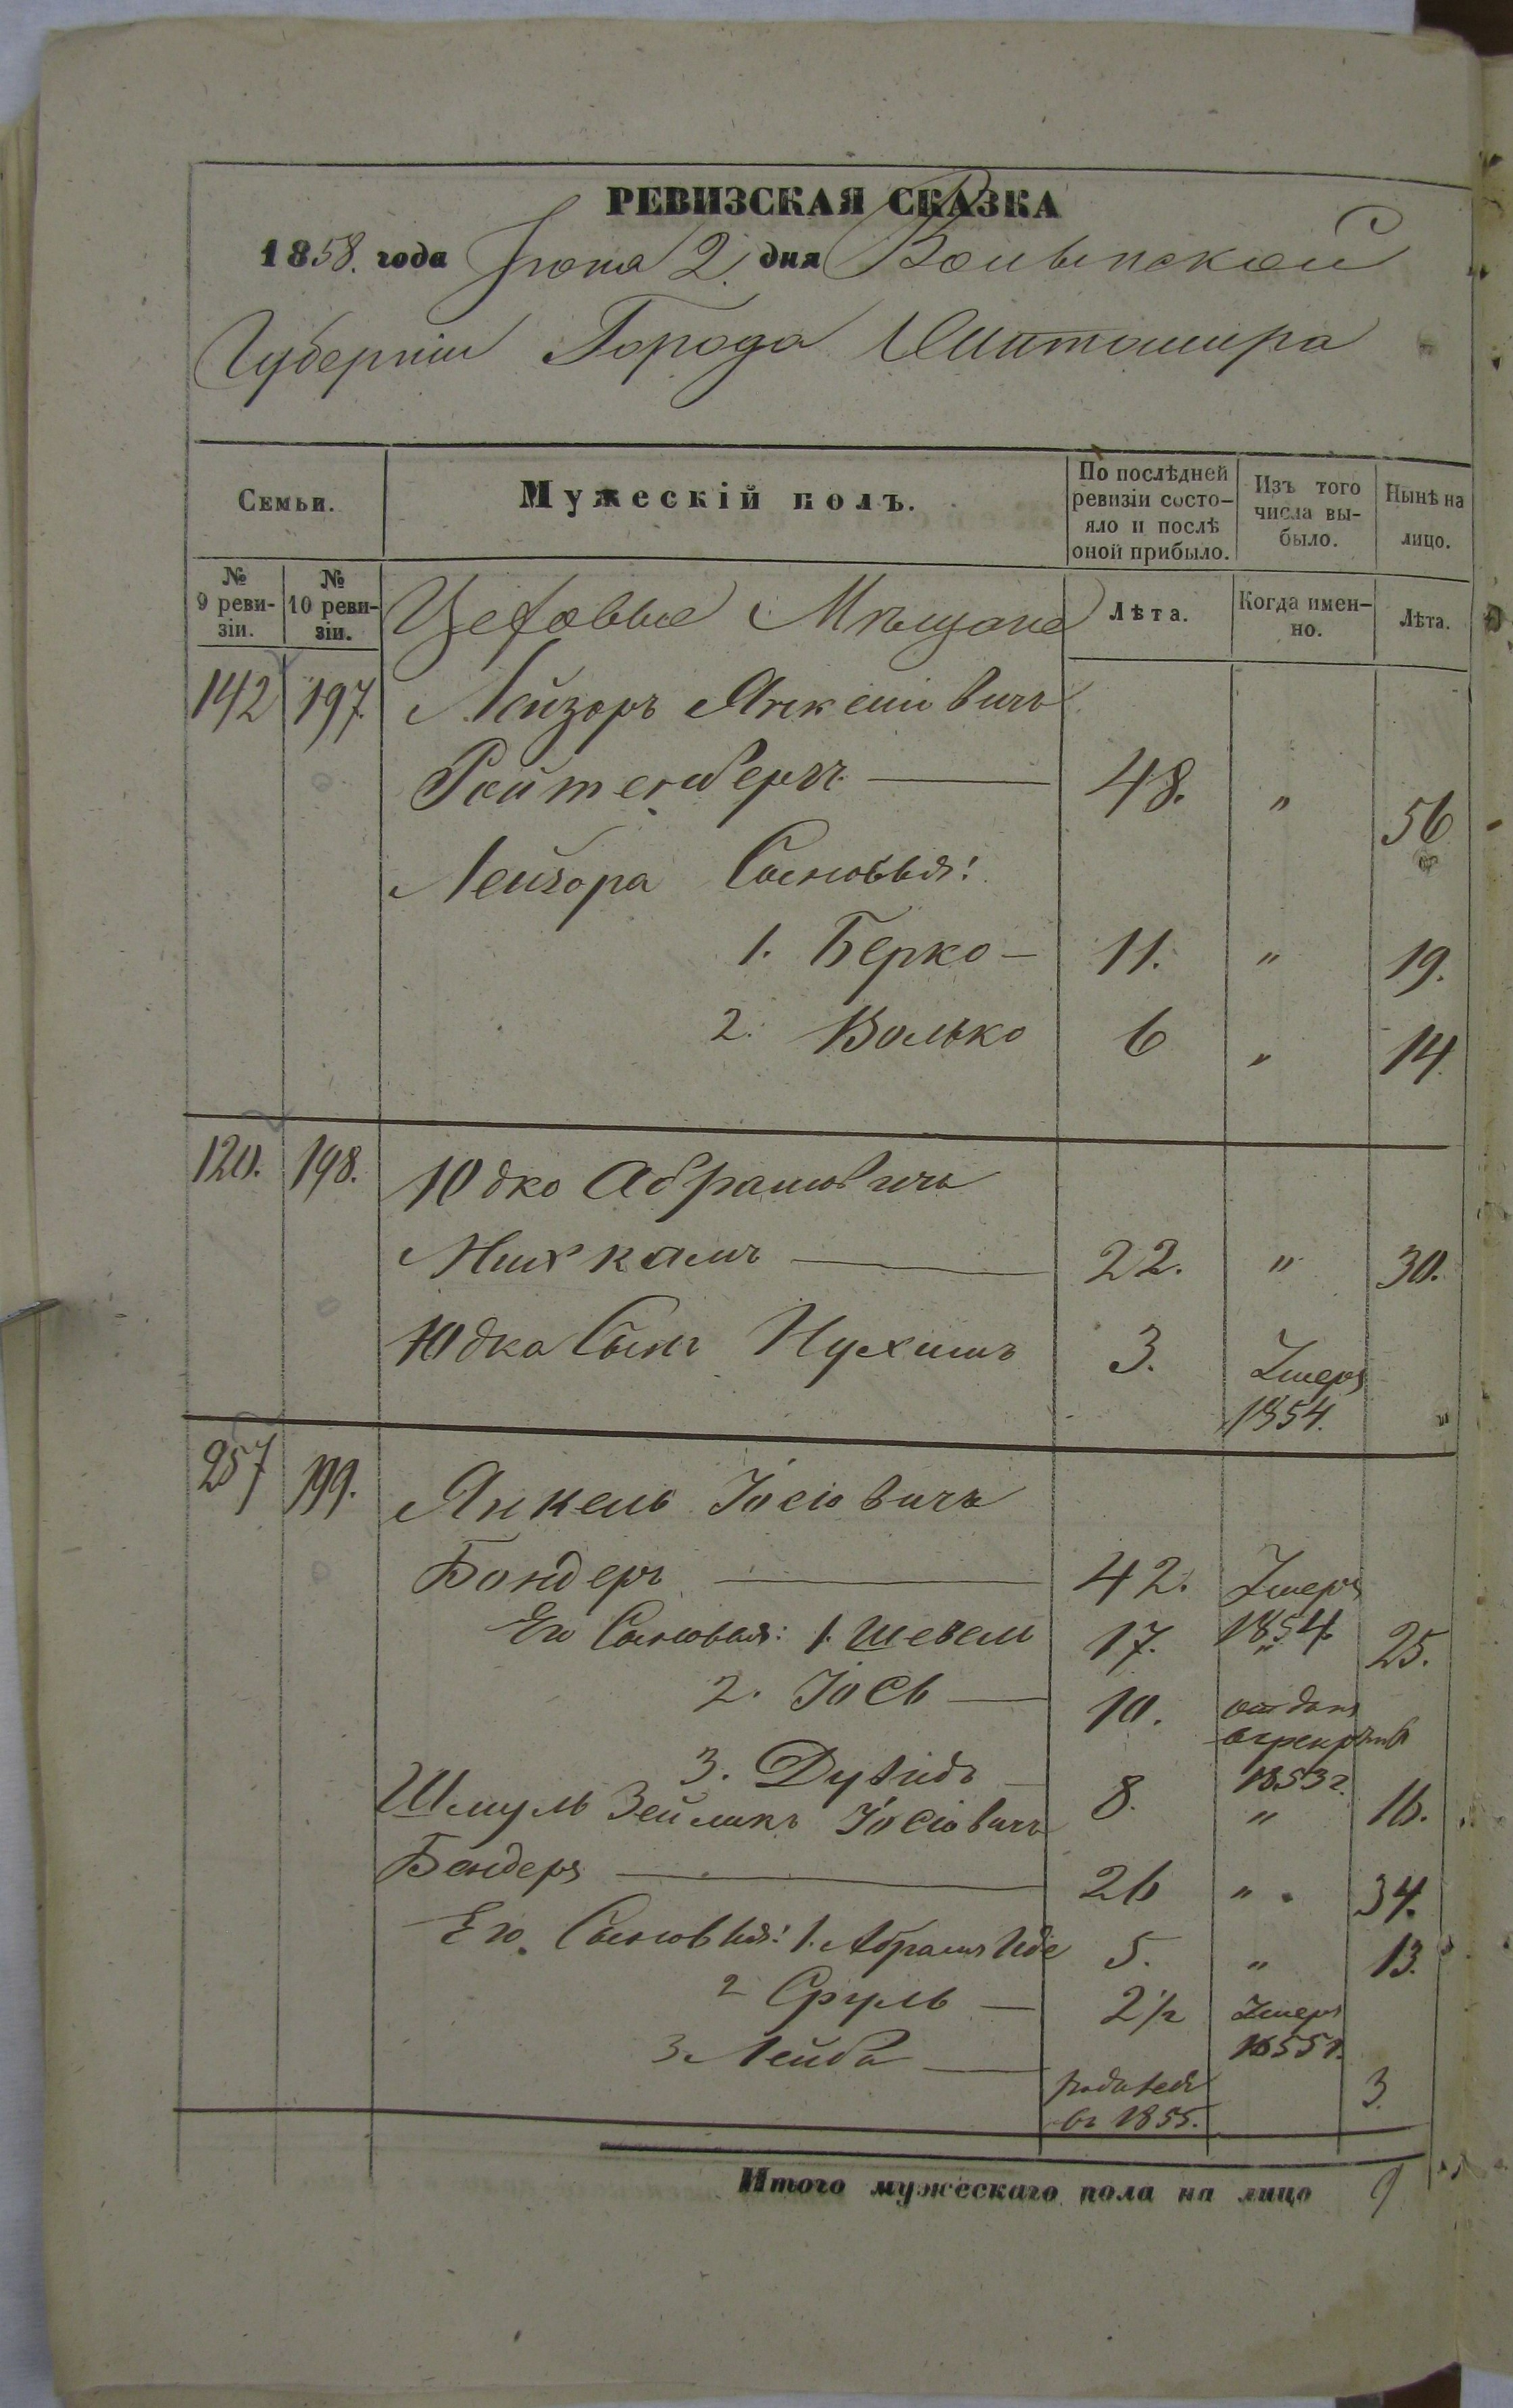 РЕВИЗСКАЯ СКАЗКА
1858. года Іюня 2. дня Волынской
Губерніи Города Житомира
Семьи.
Мужескій полъ.
По послѣдней ревизіи состо-
яло и послѣ
оной прибыло.
Изъ того
числа вы-
было.
Нынѣ на
лицо.
№
9 реви-
зіи.
№
10 реви-
зіи.
Цеховые Мѣщане
Лѣта.
Когда имен-
но.
Лѣта.
142 197. Лейзоръ Янкелiовичъ
Ройтенберъ — 48. " 56
Лейзора Сыновья:
1. Берко — 11. " 19.
2. Волько 6 " 14.
120. 198. Юдко Абрамовичъ
22. " 30.
Юдка Сынъ Нухимъ 3. Умеръ
1854. "
257 199. Янкель Іосіовичъ
Бондеръ — 42. Умеръ
1854.
Его Сыновья: 1. 17. " 25.
2. Іось — 10. отданъ
в рекруты
1853 г.
3. Дувидъ — 8. " 16.
Шмуль Зейликъ Іосіовичъ
Бондеръ — 26 " 34.
Его Сыновья: 1. Абрамъ 5. " 13.
2 Сруль — 2½ Умеръ
1855 г.
3. Лейба — родился
въ 1855. 3.
Итого мужескаго пола на лицо 9